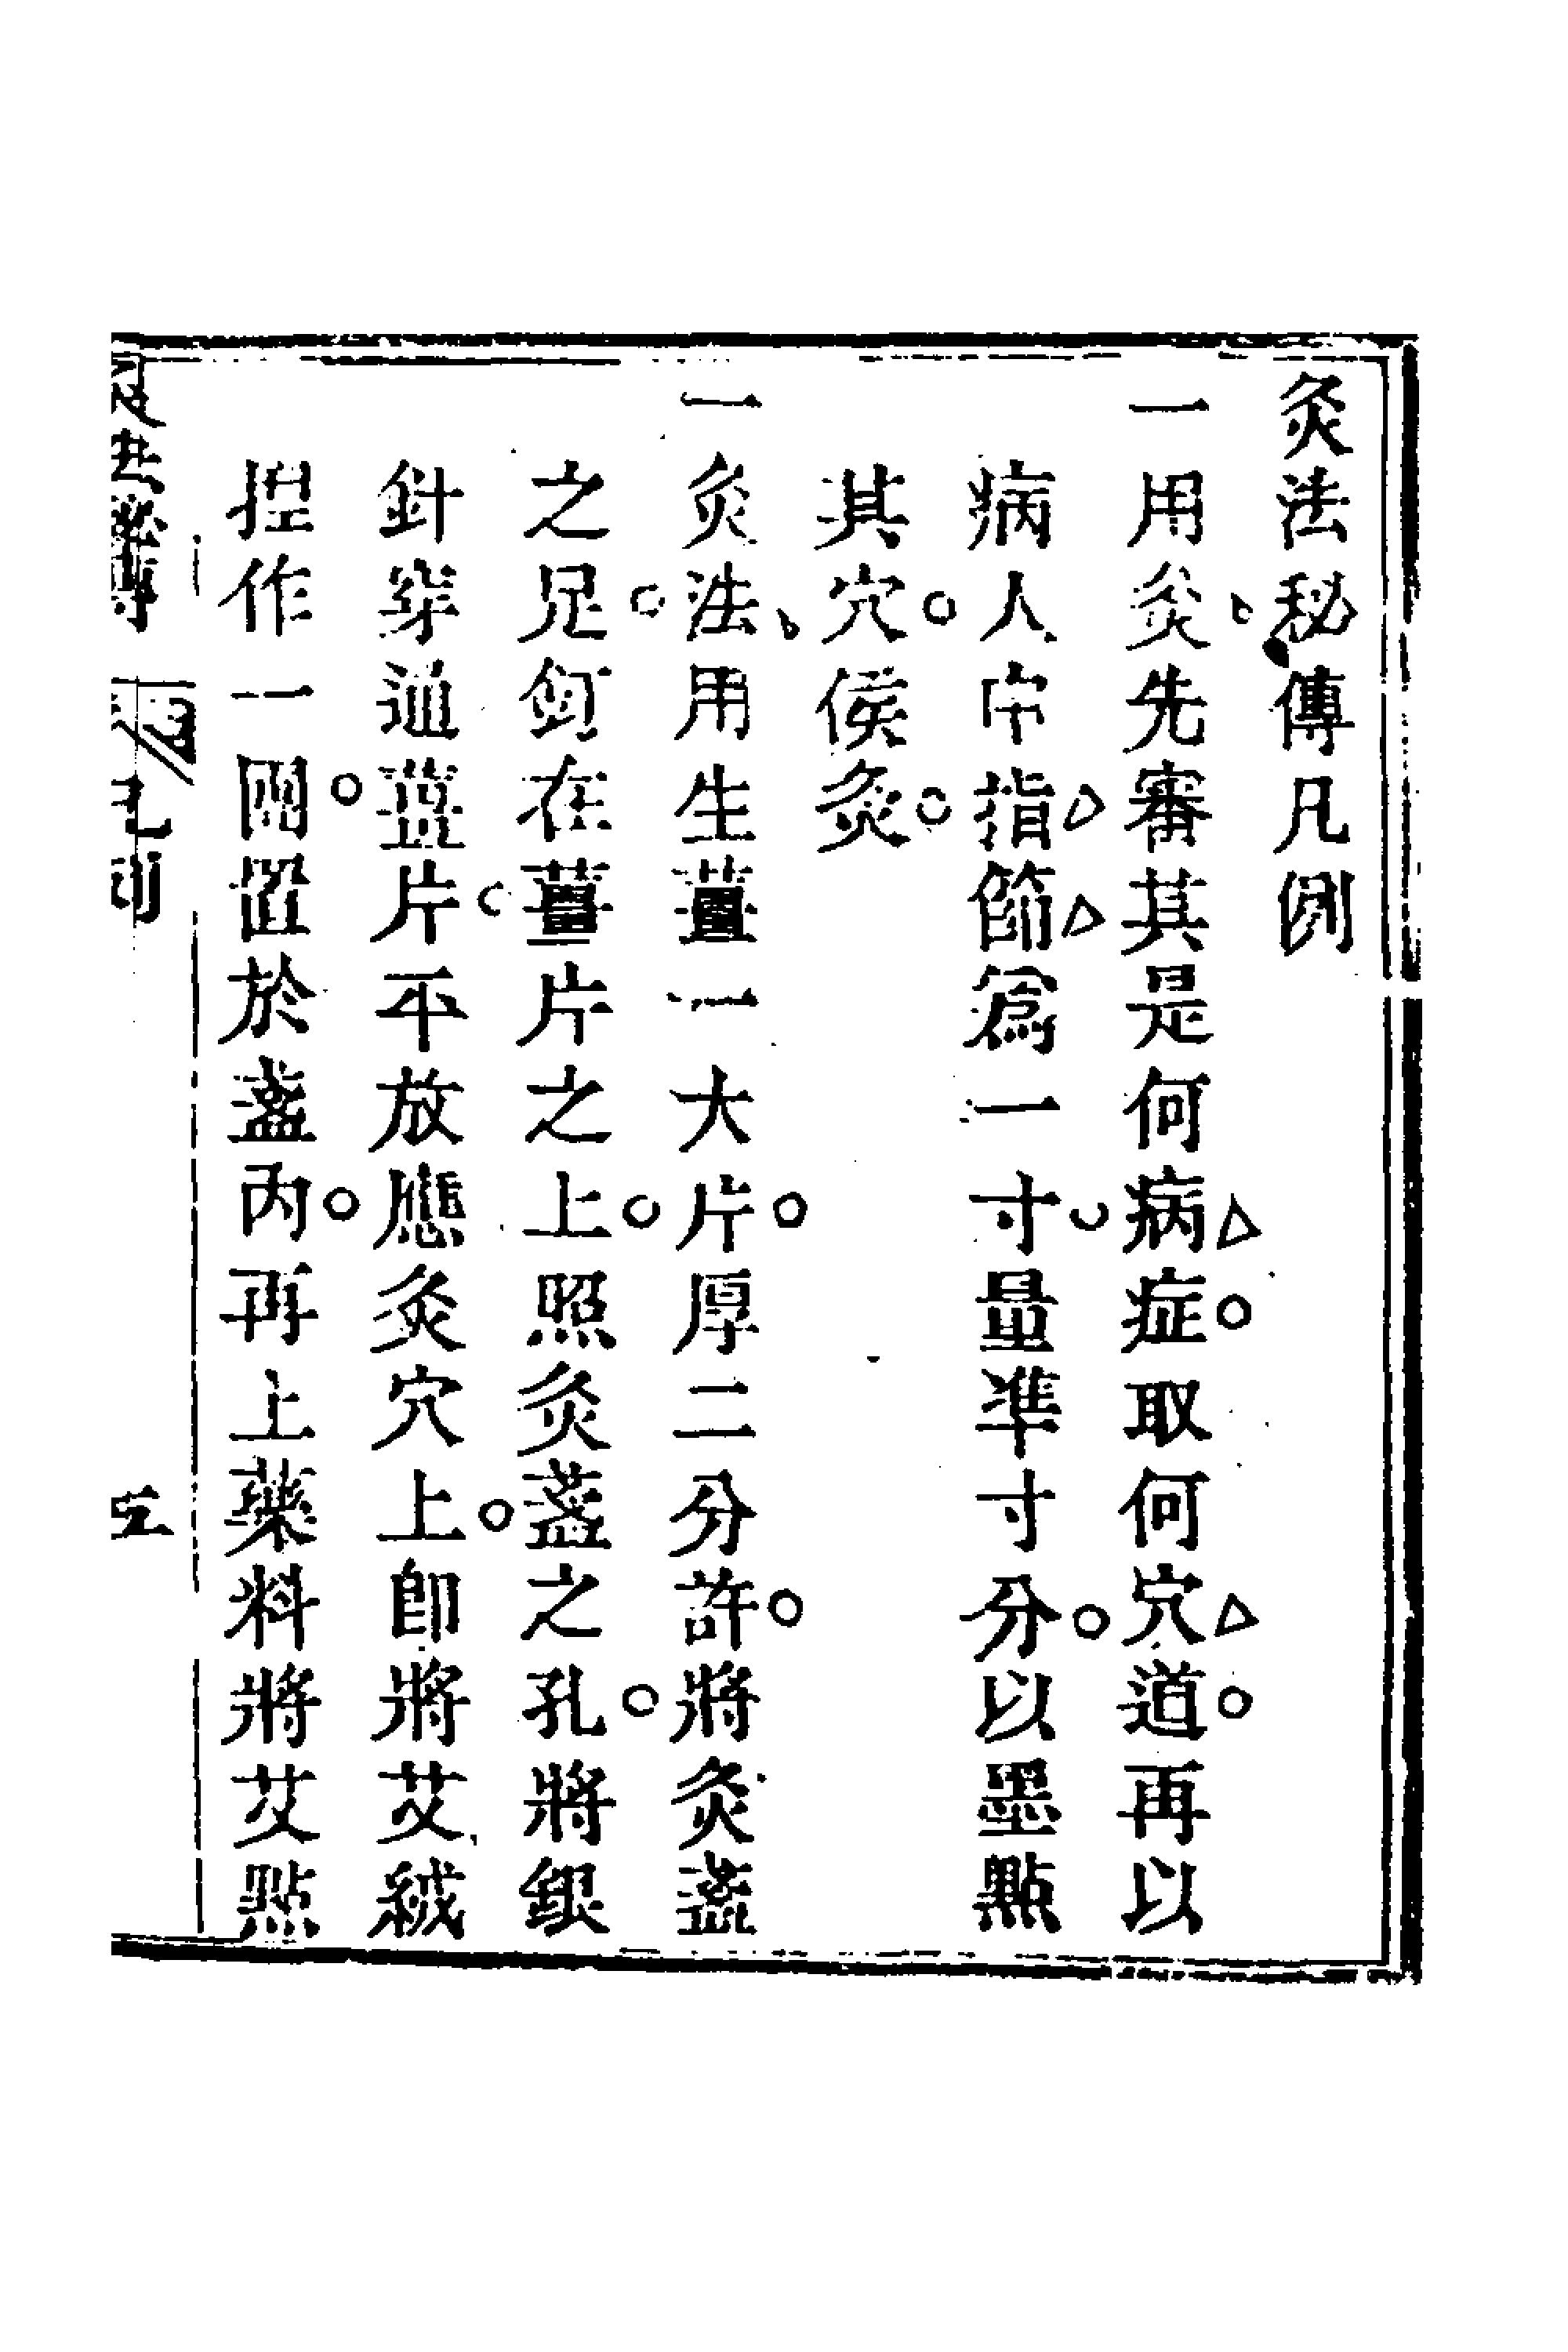 灸法秘傳凡例
一用灸先審其是何病症取何穴道再以
病人中指節爲一寸量準寸分以墨點
其穴俟灸
一灸法用生薑一大片厚二分許將灸盞
之足釘在薑片之上照灸盞之孔將銀
針穿通薑片平放應灸穴上卽將艾絨
捏作一團置於盞內再上藥料將艾點
灸法秘傳 凡例 五